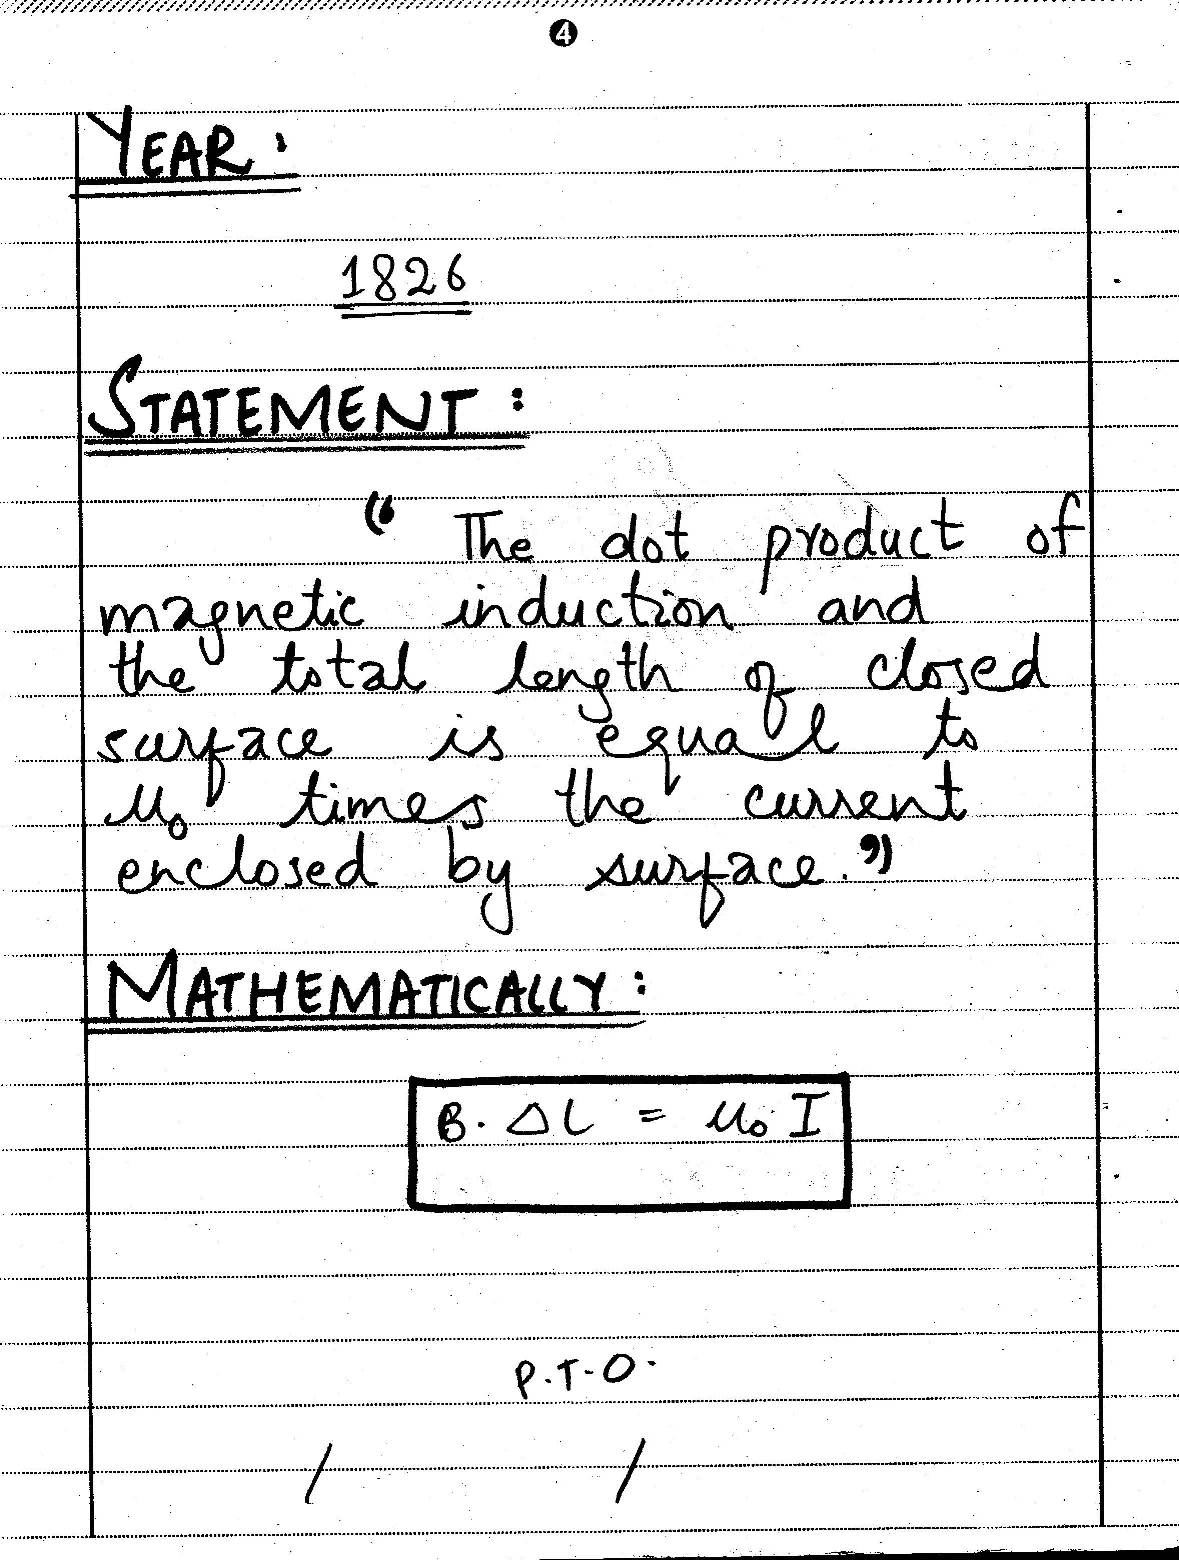 4
YEAR:
1826
STATEMENT:
"The dot product of
magnetic induction and
the total length of closed
surface is equal to
μ₀ times the current
enclosed by surface."
MATHEMATICALLY:
B. ΔL = μ₀ I
P.T.O.
/ /